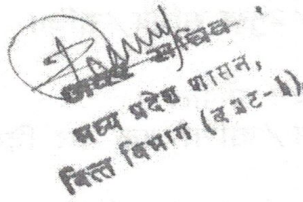 सचिव
मध्य प्रदेश शासन,
वित्त विभाग (बजट-1)